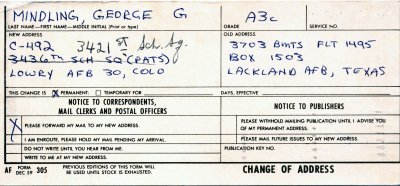 MINDLING, GEORGE G A3c
LAST NAME—FIRST NAME—MIDDLE INITIAL (Print or type) GRADE SERVICE NO.
NEW ADDRESS OLD ADDRESS
C-492 3421st Sch. Sq. 3703 BMTS FLT 1495
3436TH SCH SQ (PATS) BOX 1503
LOWRY AFB 30, COLO LACKLAND AFB, TEXAS
THIS CHANGE IS PERMANENT. TEMPORARY FOR DAYS, EFFECTIVE
NOTICE TO CORRESPONDENTS, MAIL CLERKS AND POSTAL OFFICERS
X PLEASE FORWARD MY MAIL TO MY NEW ADDRESS.
I AM ENROUTE, PLEASE HOLD MY MAIL PENDING MY ARRIVAL.
DO NOT WRITE UNTIL YOU HEAR FROM ME.
WRITE TO ME AT MY NEW ADDRESS.
NOTICE TO PUBLISHERS
PLEASE WITHHOLD MAILING PUBLICATION UNTIL I ADVISE YOU OF MY PERMANENT ADDRESS.
PLEASE MAIL FUTURE ISSUES TO MY NEW ADDRESS.
PUBLICATION KEY NO.
AF FORM DEC 59 305 PREVIOUS EDITIONS OF THIS FORM WILL BE USED UNTIL STOCK IS EXHAUSTED. CHANGE OF ADDRESS